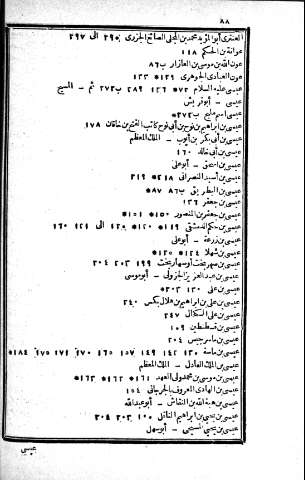 ٨٨
العنترى أبو المؤيد محمد بن المجلى الصائغ الجزرى ٢٩٠* الى ٢٩٧
عوانة بن الحكم ١١٨
عون الله بن موسى بن العازار ب٨٦
عون العبادى الجوهرى ١٢٩* ١٣٣
عيسى عليه السلام ٧٢* ١٢٦ ٢٨٩ ب٢٧٢ ثم - المسيح
عيسى - أبو قريش
عيسى اسم ملیح ب٢٧٢*
عيسى بن ابراهيم بن نوح بن أبى نوح كاتب الفتح بن خاقان ١٧٨
عيسى بن أبى بكر بن أيوب - الملك المعظم
عيسى بن أبى خالد ١٦٠
عيسى بن اسحق - أبو على
عيسى بن أسيد النصرانى ٢١٨* ٢١٩
عيسى بن البطريق ب٨٦ ٨٧*
عيسى بن جعفر ١٣٦
عيسى بن جعفر بن المنصور ١٥٠* ١٥١*
عيسى بن حكم الدمشقى ١١٩* ١٢٠* الى ١٢١ ١٦٠
عيسى بن زرعة - أبو على
عيسى بن شهلا ١٢٤* ١٢٥*
عيسى بن صهر بخت أو سهار بخت ١٩٩ ٢٠٣ ٢٠٤
عيسى بن عبد العزيز الجزولى - أبو موسى
عيسى بن على ١٣٠ ٢٠٣*
عيسى بن على بن ابراهيم بن هلال بكس ٢٤٠
عيسى بن على الكحال ٢٤٧
عيسى بن قسطنطين ١٠٩
عيسى بن ماسرجيس ٢٠٤
عيسى بن ماسة ١٣٠ ١٤٢ ١٤٩ ١٥٧ ١٧٠ ١٧١ ١٧٥ ١٨٤*
عيسى بن الملك العادل - الملك المعظم
عيسى بن موسى بن محمد ولى العهد ١٦١* ١٦٢* ١٦٣*
عيسى بن الهادى المعروف بالجرجانى ١٥٤
عيسى بن هبة الله بن النقاش - أبو عبد الله
عيسى بن يحيى بن ابراهيم الناقل ١٠٠ ٢٠٣ ٢٠٤
عيسى بن يحيى المسيحى - أبو سهل
عيسى